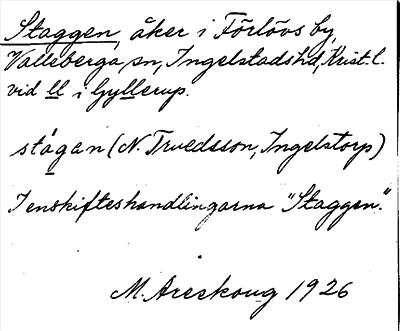 Staggen, åker i Förlövs by,
Valleberga, sn, Ingelstads hd, Krist. l.
vid ll i Gyllerup.
stágan (N. Truedsson, Ingelstorp)
I enskifteshandlingarna "Staggen."
M. Areskoug 1926